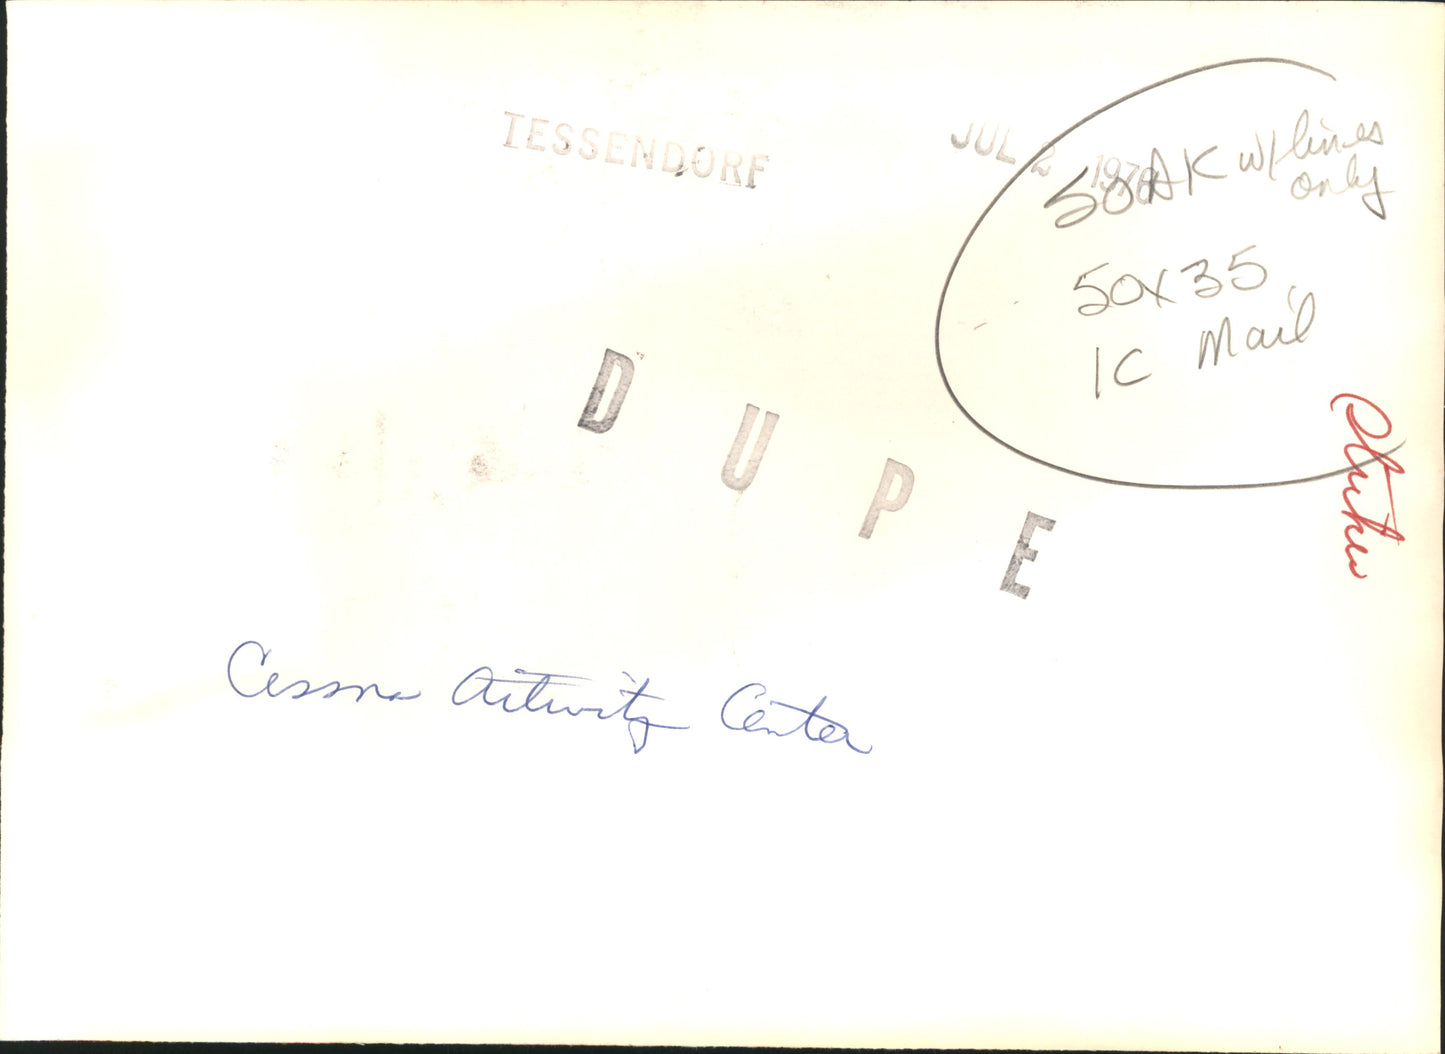 TESSENDORF
JUL 2 1978
50AK w/ lines
only
50x35
1C Mail
DUPE
Cessna Activity Center